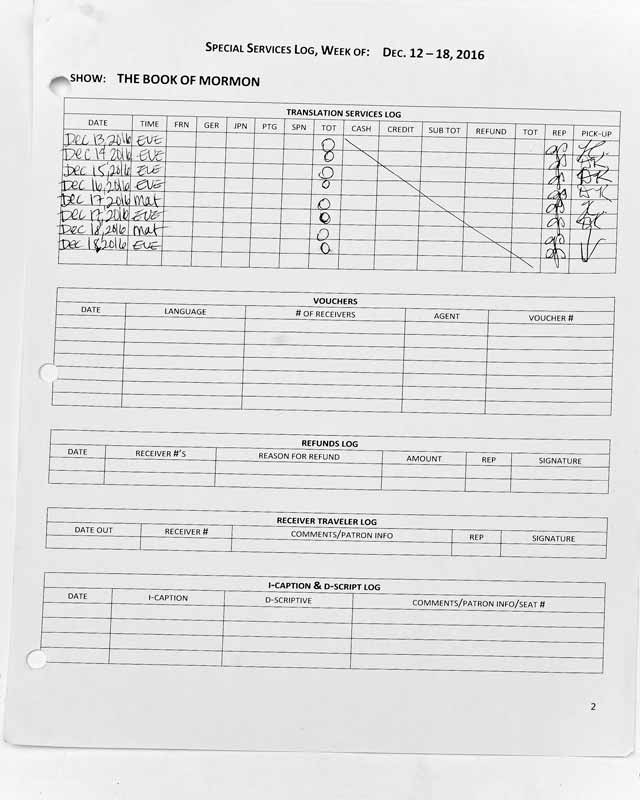 SPECIAL SERVICES LOG, WEEK OF: DEC. 12 – 18, 2016
SHOW: THE BOOK OF MORMON
TRANSLATION SERVICES LOG
DATE TIME FRN GER JPN PTG SPN TOT CASH CREDIT SUB TOT REFUND TOT REP PICK-UP
Dec 13, 2016 EVE 0
Dec 14, 2016 EVE 0 AK
Dec 15, 2016 EVE 0 AK
Dec 16, 2016 EVE 0 AK
Dec 17, 2016 mat 0
Dec 17, 2016 EVE 0
Dec 18, 2016 mat 0
Dec 18, 2016 EVE 0
VOUCHERS
DATE LANGUAGE # OF RECEIVERS AGENT VOUCHER #
REFUNDS LOG
DATE RECEIVER #'S REASON FOR REFUND AMOUNT REP SIGNATURE
RECEIVER TRAVELER LOG
DATE OUT RECEIVER # COMMENTS/PATRON INFO REP SIGNATURE
I-CAPTION & D-SCRIPT LOG
DATE I-CAPTION D-SCRIPTIVE COMMENTS/PATRON INFO/SEAT #
2